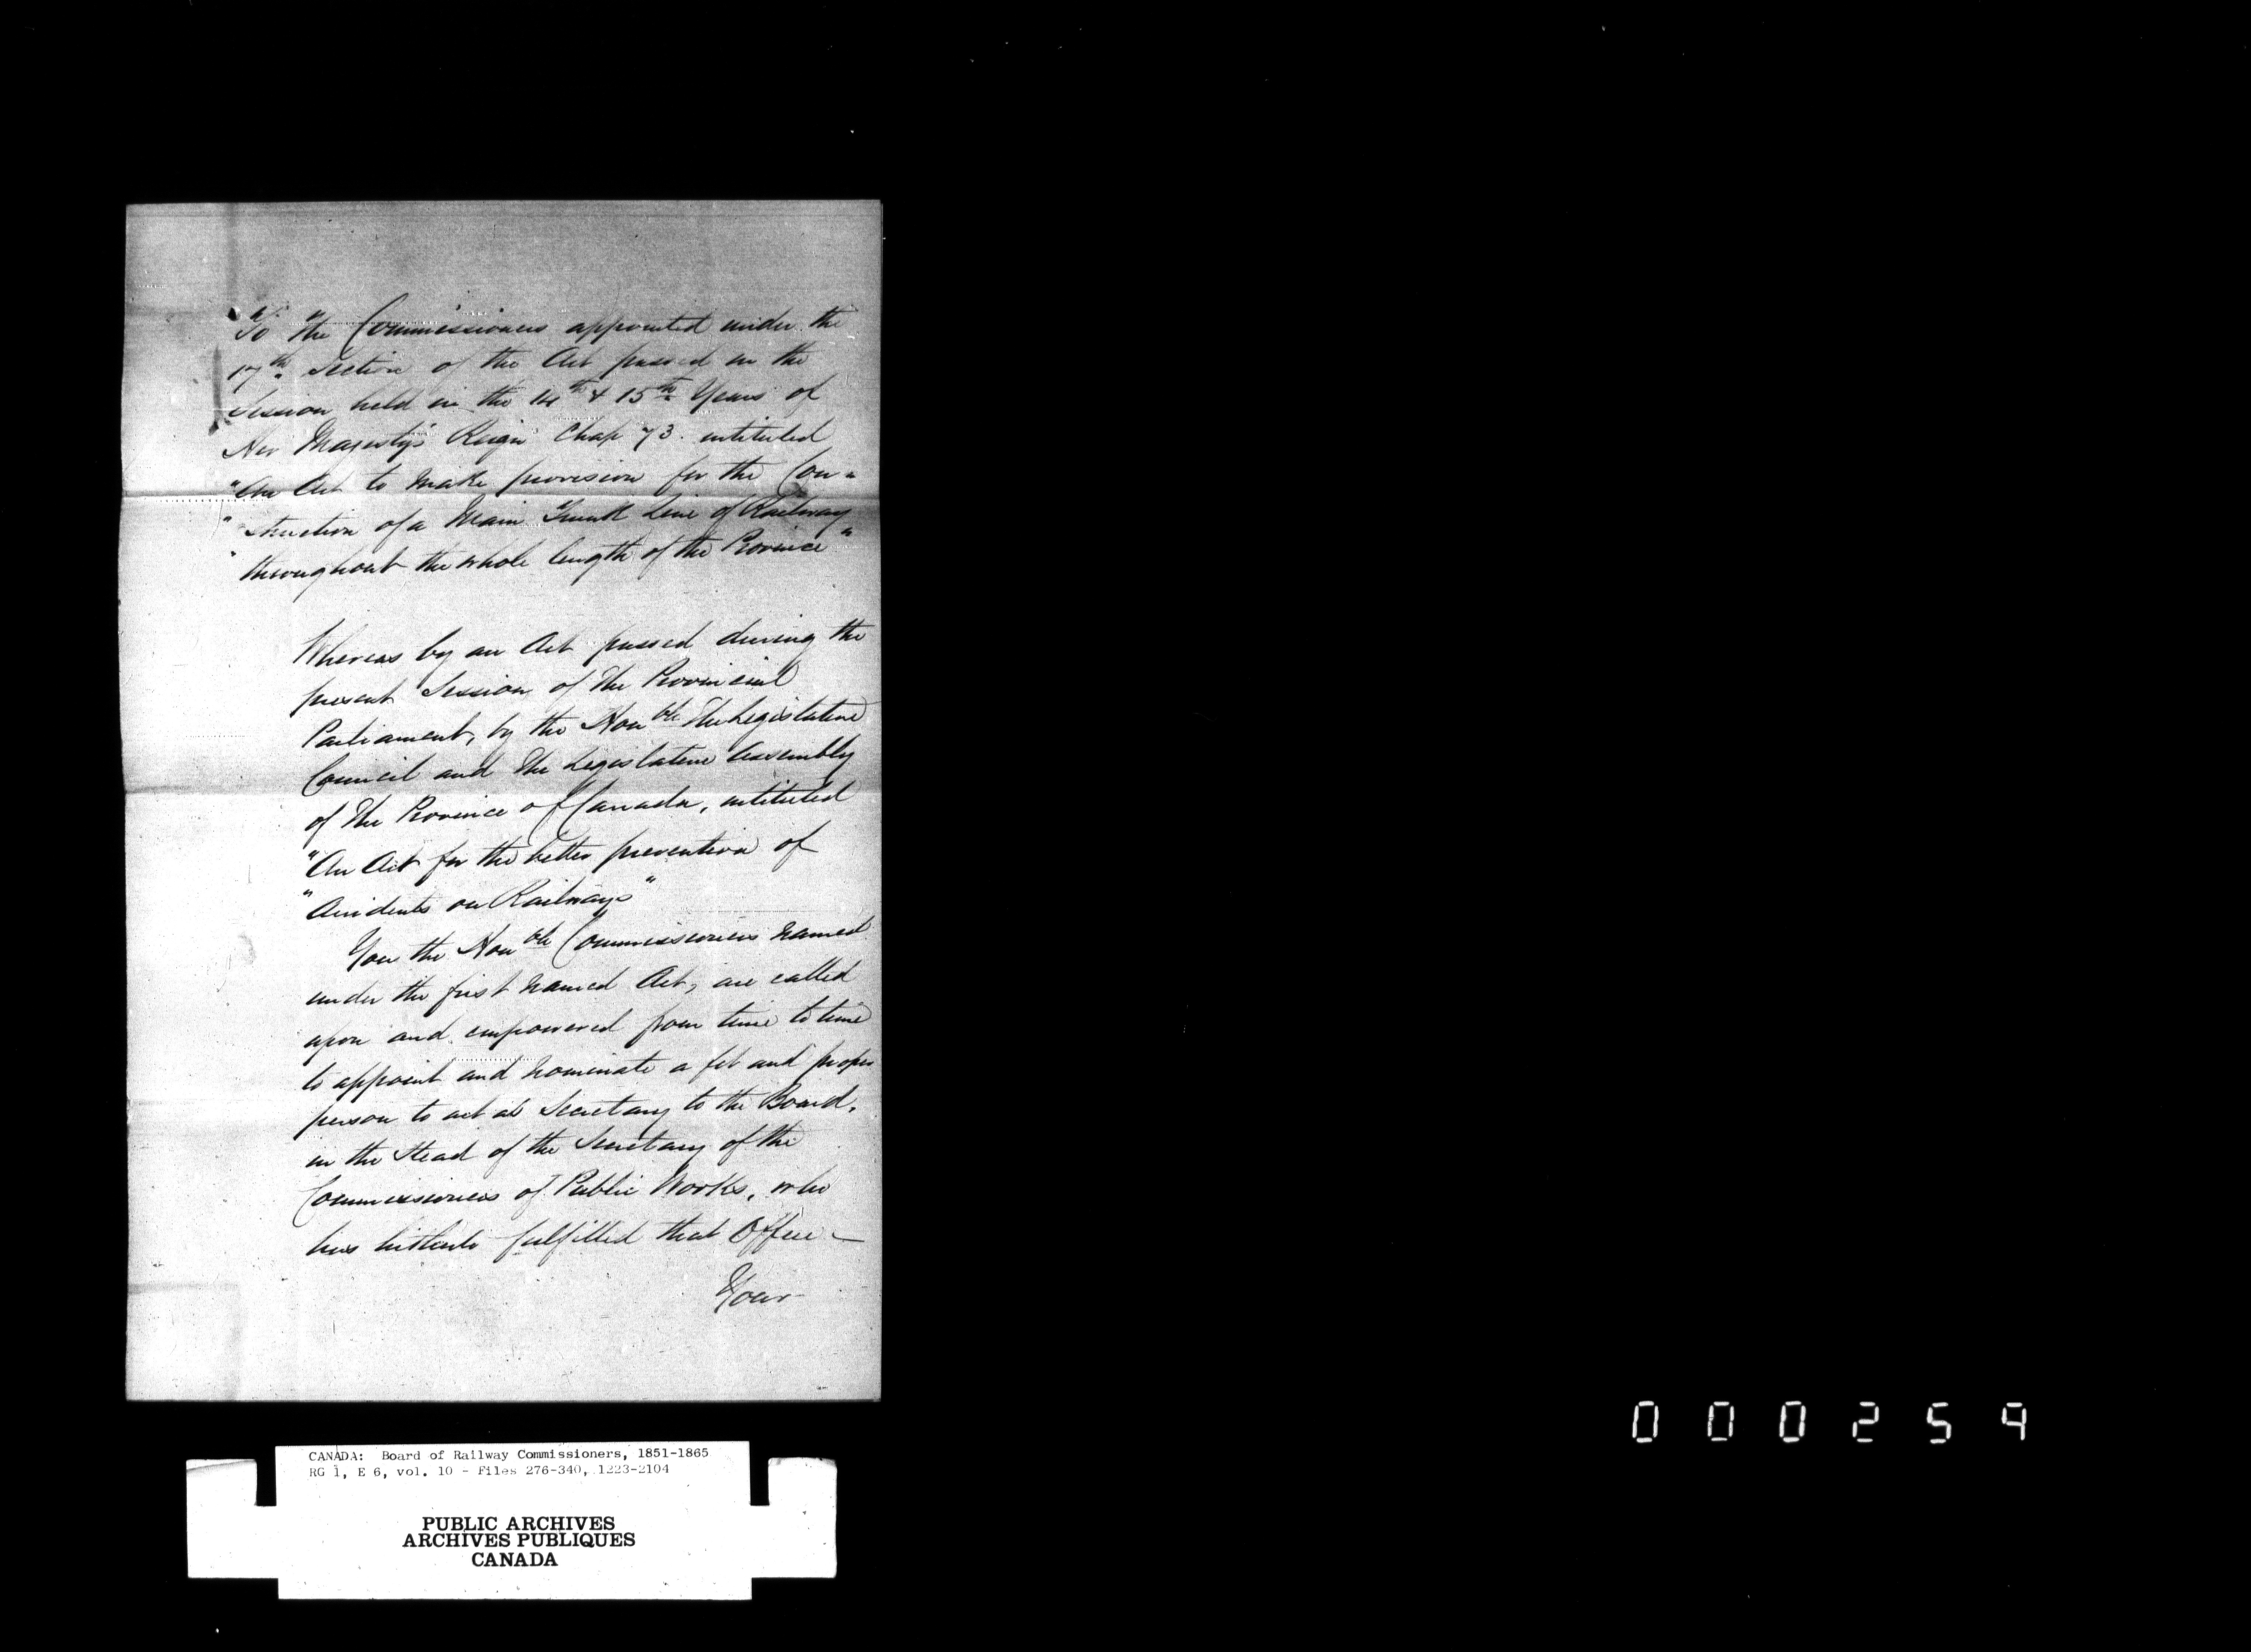 To the Commissioners appointed under the
17th Section of the Act passed in the
Session held in the 14th & 15th Years of
Her Majesty's Reign Chap 73. intituled
"An Act to make provision for the Con=
"struction of a Main Trunk Line of Railway
"throughout the whole length of the Province"
Whereas by an Act passed during the
present Session of the Provincial
Parliament, by the Honble The Legislative
Council and The Legislative Assembly
of The Province of Canada, intituled
"An Act for the better prevention of
"Accidents on Railways"
You the Honble Commissioners named
under the first named Act, are called
upon and empowered from time to time
to appoint and nominate a fit and proper
person to act as Secretary to the Board,
in the Stead of the Secretary of the
Commissioners of Public Works, who
has hitherto fulfilled that Office —
Your
CANADA: Board of Railway Commissioners, 1851-1865
RG 1, E 6, vol. 10 - Files 276-340, 1223-2104
PUBLIC ARCHIVES
ARCHIVES PUBLIQUES
CANADA
000259